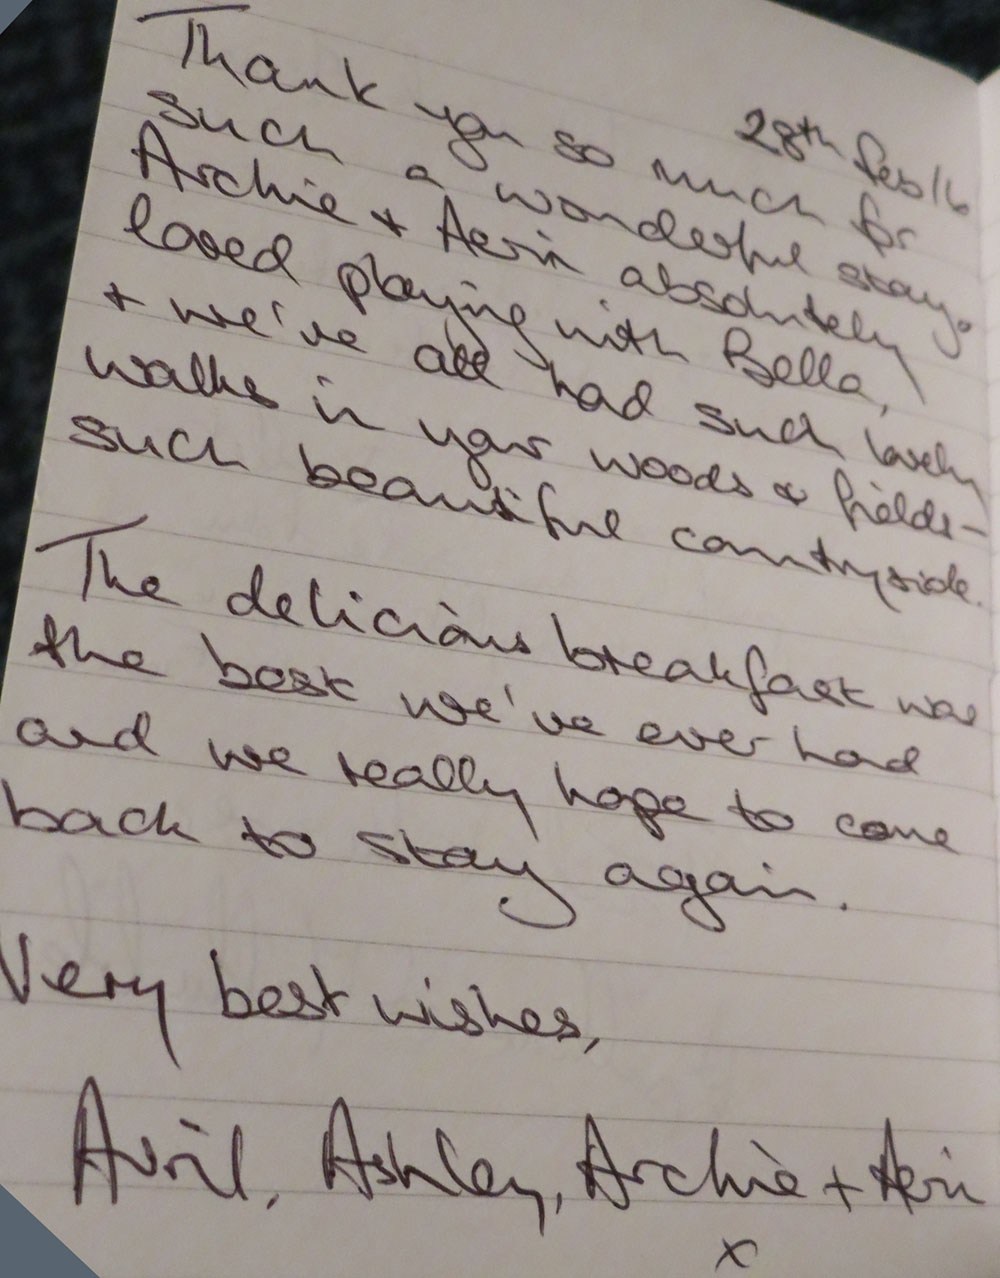 28th Feb/16
Thank you so much for
such a wonderful stay.
Archie + Aerin absolutely
loved playing with Bella,
+ we've all had such lovely
walks in your woods & fields-
such beautiful countryside.
The delicious breakfast was
the best we've ever had
and we really hope to come
back to stay again.
Very best wishes,
Avril, Ashley, Archie + Aerin
x